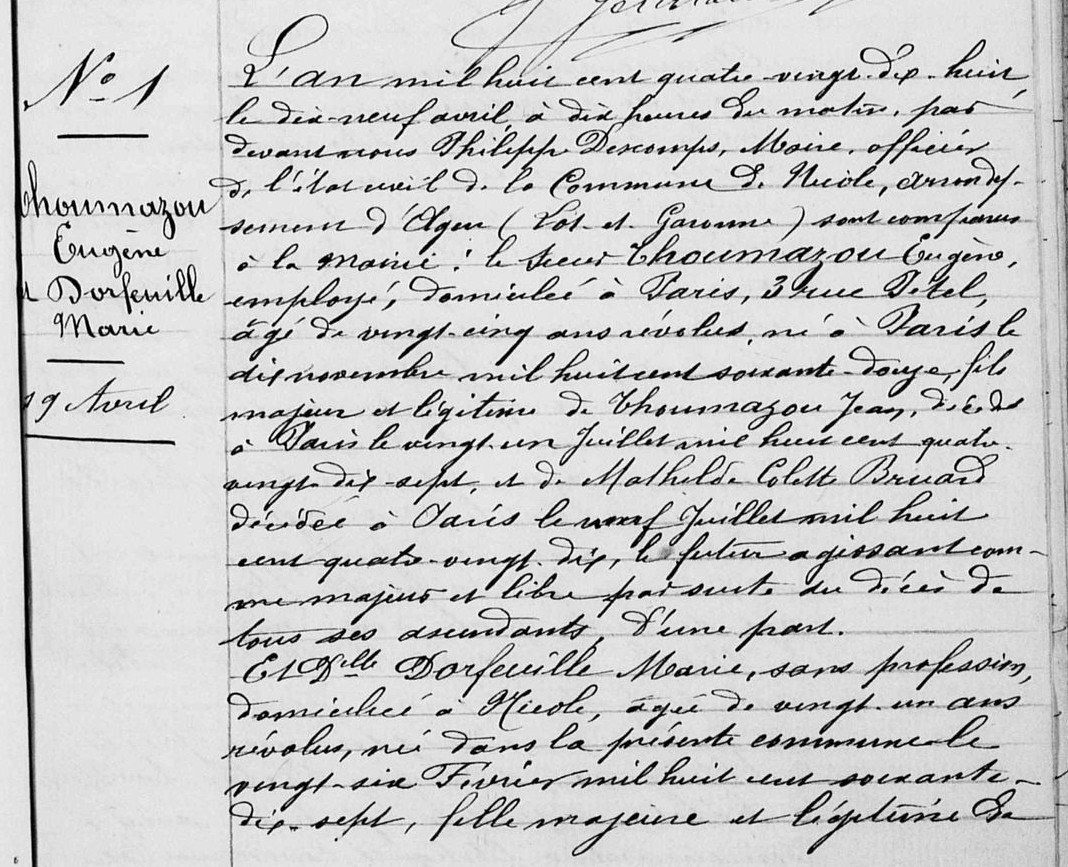 N° 1
Thoumazou
Eugène
et Dorfeuille
Marie
19 Avril
L'an mil huit cent quatre-vingt-dix-huit,
le dix-neuf avril à dix heures du matin, par
devant nous Philippe Descomps, Maire, officier
de l'état civil de la Commune de Nicole, arrondis-
sement d'Agen (Lot-et-Garonne) sont comparus
à la mairie : le sieur Thoumazou Eugène,
employé, domicilié à Paris, 3 rue Petel,
âgé de vingt-cinq ans révolus, né à Paris le
dix novembre mil huit cent soixante-douze, fils
majeur et légitime de Thoumazou Jean, décédé
à Paris le vingt-un Juillet mil huit cent quatre-
vingt-dix-sept, et de Mathilde Colette Bruard
décédée à Paris le neuf Juillet mil huit
cent quatre-vingt-dix, le futur agissant com-
me majeur et libre par suite du décès de
tous ses ascendants, d'une part.
Et Dlle Dorfeuille Marie, sans profession,
domiciliée à Nicole, âgée de vingt-un ans
révolus, née dans la présente commune le
vingt-six Février mil huit cent soixante-
dix-sept, fille majeure et légitime de